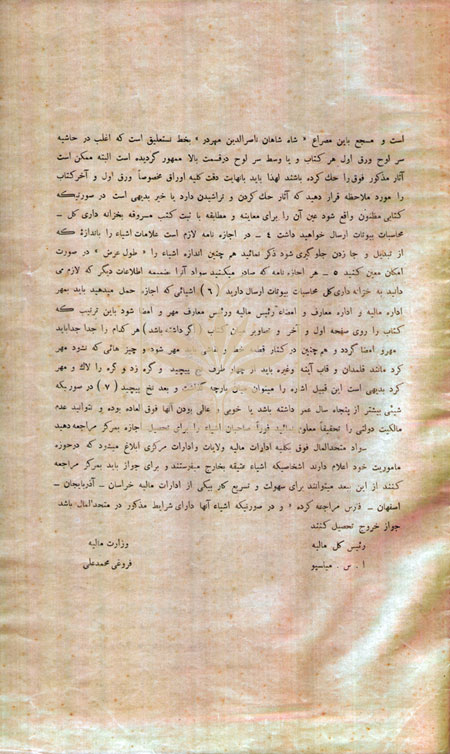 است و مسجع باین مصراع « شاه شاهان ناصرالدین مهردر » بخط نستعلیق است که اغلب در حاشیه
سر لوح ورق اول هر کتاب و یا وسط سر لوح درقسمت بالا ممهور گردیده است البته ممکن است
آثار مذکور فوق را حك کرده باشند لهذا باید بانهایت دقت کلیه اوراق مخصوصاً ورق اول و آخر کتاب
را مورد ملاحظه قرار دهید که آثار حك کردن و تراشیدن دارد یا خیر بدیهی است در صورتیکه
کتابی مظنون واقع شود عین آن را برای معاینه و مطابقه با ثبت کتب مسروقه بخزانه داری کل ـ
محاسبات بیوتات ارسال خواهید داشت ٤ ـ در اجازه نامه لازم است علامات اشیاء را باندازهٔ که
از تبدیل و جا زدن جلوگیری شود ذکر نمائید هم چنین اندازه اشیاء را « طول عرض » در صورت
امکان معین کنید ٥ ـ هر اجازه نامه که صادر میکنید سواد آنرا ضمیمه اطلاعات دیگر که لازم می
دانید به خزانه داری کل محاسبات بیوتات ارسال دارید ( ٦ ) اشیائی که اجازه حمل میدهید باید بمهر
اداره مالیه و اداره معارف و امضاء رئیس مالیه ورئیس معارف مهر و امضا شود باین ترتیب که
کتاب را روی صفحه اول و آخر و تصاویر میان کتاب ( اگر داشته باشد ) هر کدام را جدا جداباید
مهرو امضا گردد و هم چنین در کنار قطعه خط و نقاشی باید مهر شود و چیز هائی که نشود مهر
کرد مانند قلمدان و قاب آینه وغیره باید از چهار طرف نخ پیچید و گره زد و گره را لاك و مهر
کرد بدیهی است این قبیل اشیاء را میتوان میان پارچه گذاشت و بعد نخ پیچید ( ٧ ) در صورتیکه
شیئی بیشتر از پنجاه سال عمر داشته باشد یا خوبی و عالی بودن آنها فوق العاده بوده و نتوانید عدم
مالکیت دولتی را تحقیقاً معلوم نمائید فوراً صاحبان اشیاء را برای تحصیل اجازه بمرکز مراجعه دهید
سواد متحدالمال فوق بکلیه ادارات مالیه ولایات وادارات مرکزی ابلاغ میشود که درحوزه
ماموریت خود اعلام دارند اشخاصیکه اشیاء عتیقه بخارج میفرستند و برای جواز باید بمرکز مراجعه
کنند از این ببعد میتوانند برای سهولت و تسریع کار بیکی از ادارات مالیه خراسان ـ آذربایجان ـ
اصفهان ـ فارس مراجعه کرده و در صورتیکه اشیاء آنها دارای شرایط مذکور در متحدالمال باشد
جواز خروج تحصیل کنند
رئیس کل مالیه
وزارت مالیه
ا . س . میلسپو
فروغی محمدعلی